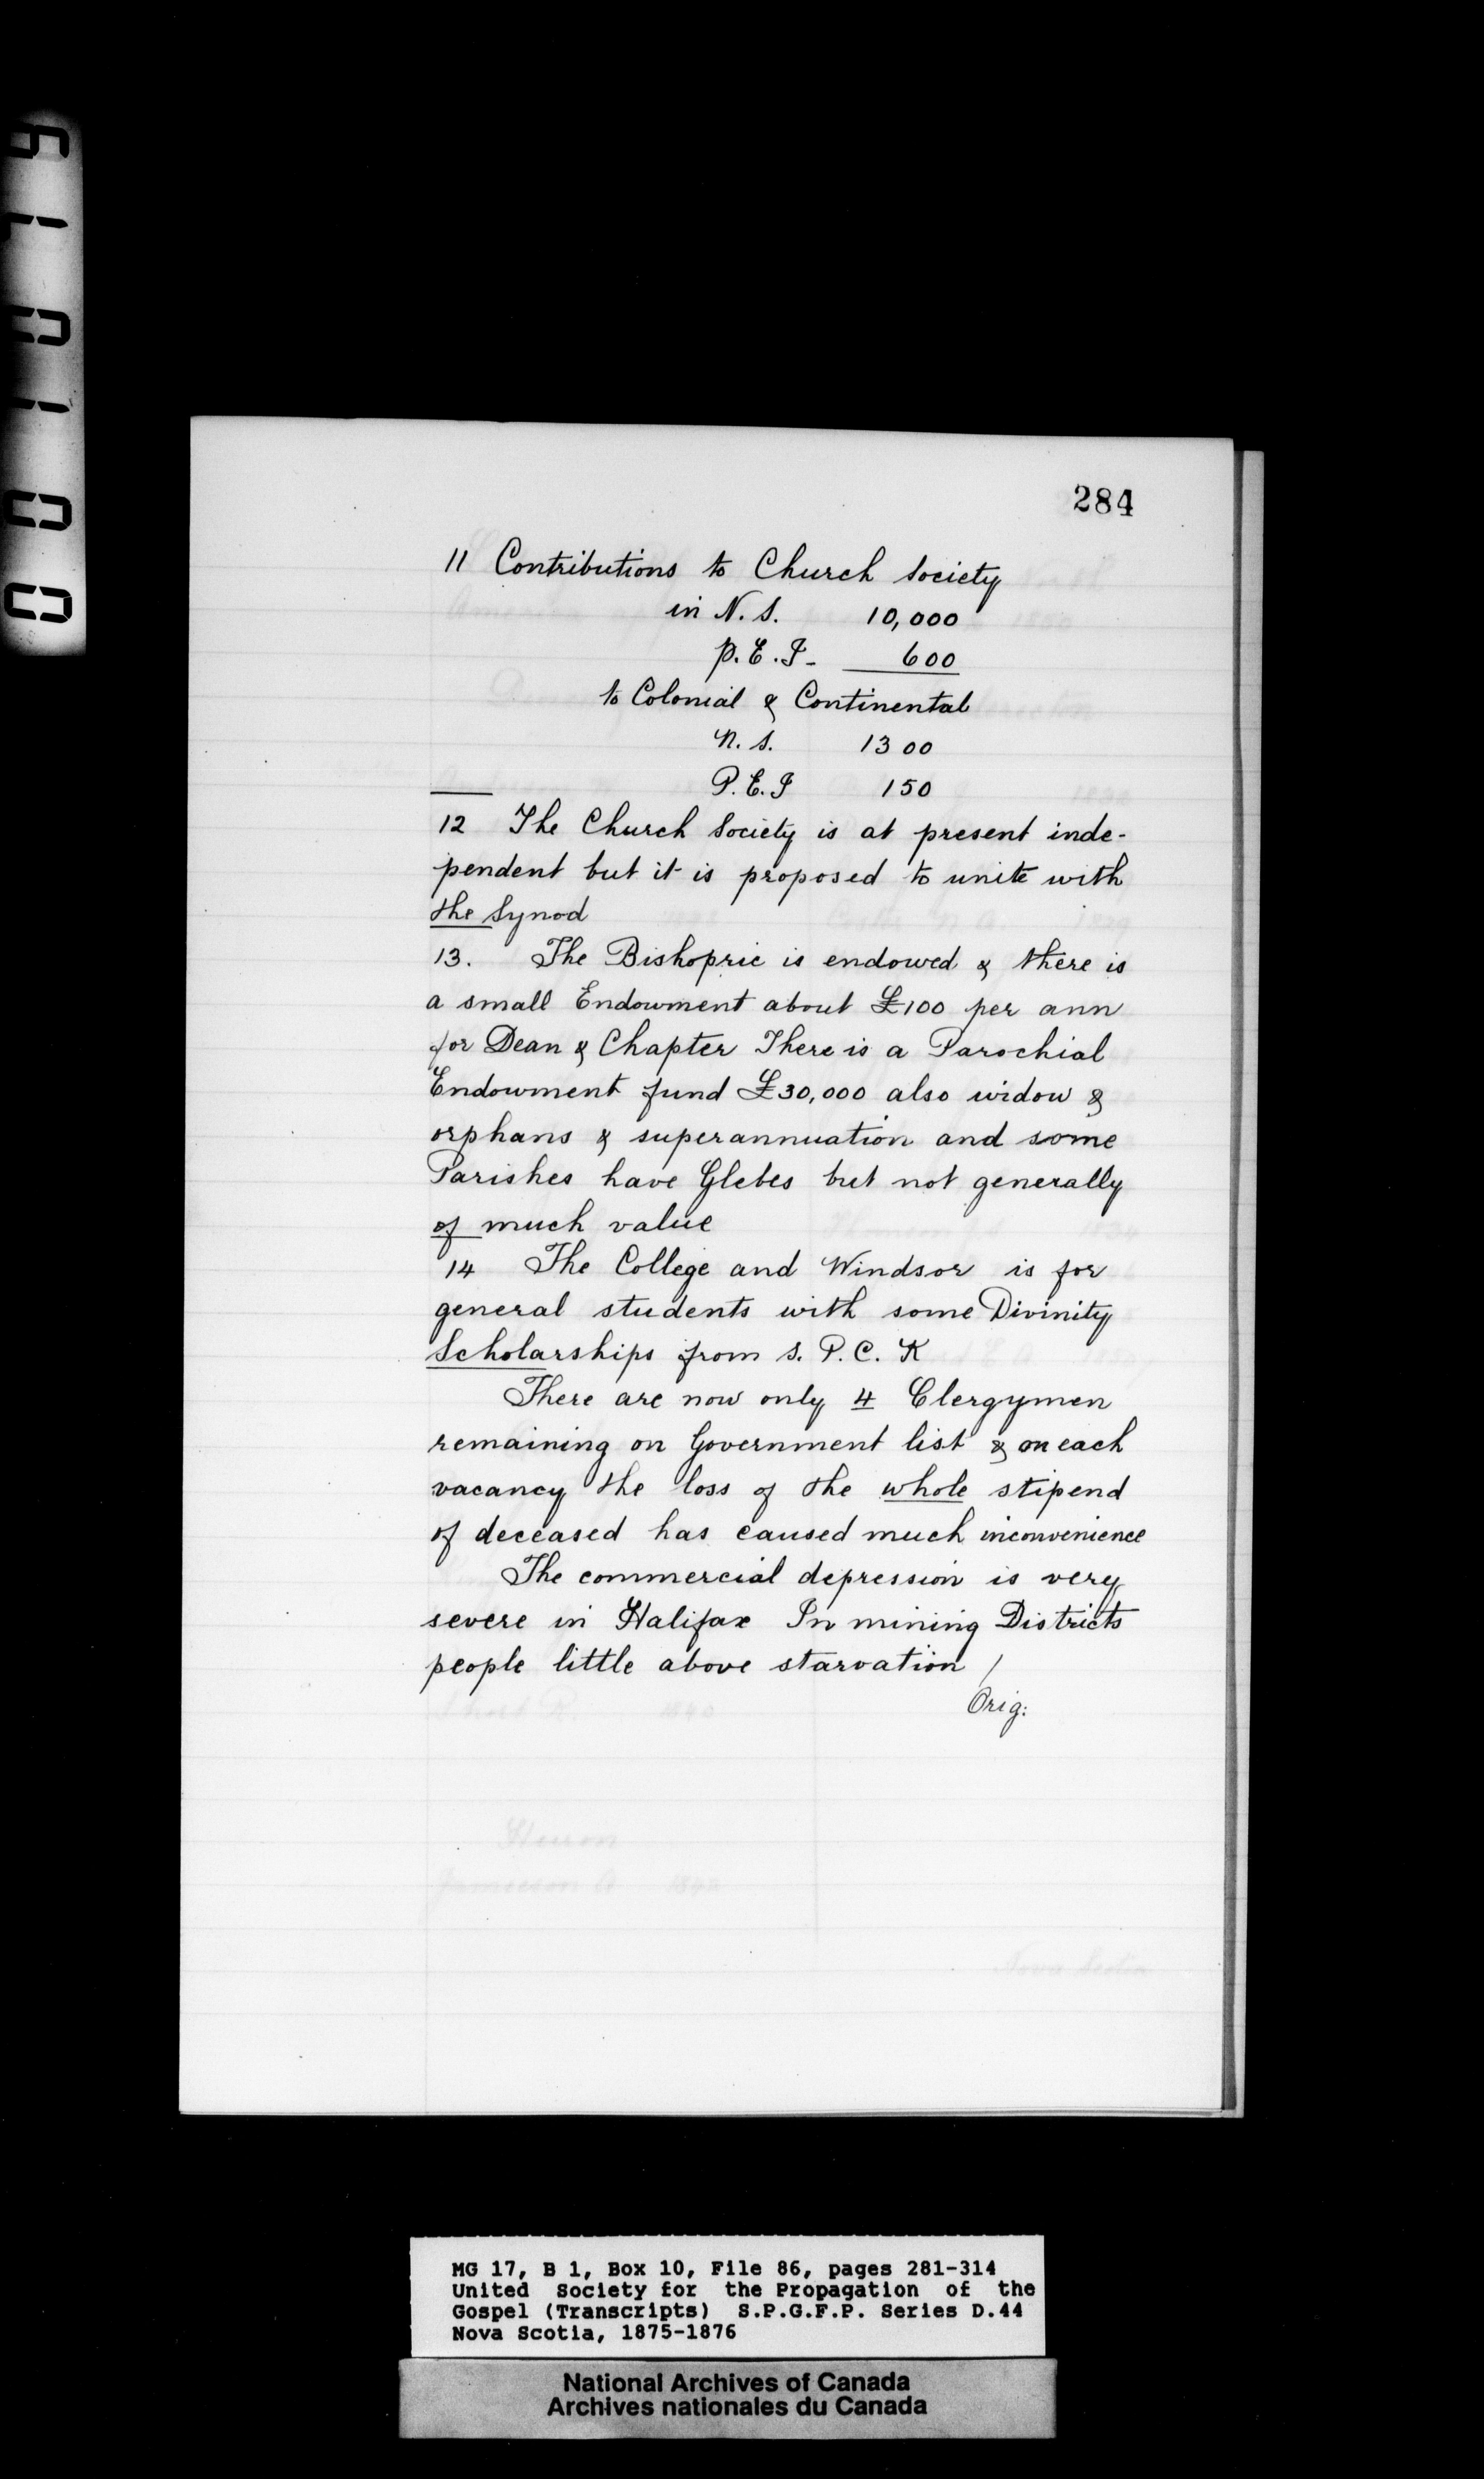 284
11 Contributions to Church Society
in N. S. 10,000
P. E. I- 600
to Colonial & Continental
N. S. 1300
P. E. I 150
12 The Church Society is at present inde-
pendent but it is proposed to unite with
the Synod
13. The Bishopric is endowed & there is
a small Endowment about £100 per ann
for Dean & Chapter There is a Parochial
Endowment fund £30,000 also widow &
orphans & superannuation and some
Parishes have Glebes but not generally
of much value
14 The College and Windsor is for
general students with some Divinity
Scholarships from S. P. C. K
There are now only 4 Clergymen
remaining on Government list & on each
vacancy the loss of the whole stipend
of deceased has caused much inconvenience
The commercial depression is very
severe in Halifax In mining Districts
people little above starvation /
Orig:
MG 17, B 1, Box 10, File 86, pages 281-314
United Society for the Propagation of the
Gospel (Transcripts) S.P.G.F.P. Series D.44
Nova Scotia, 1875-1876
National Archives of Canada
Archives nationales du Canada